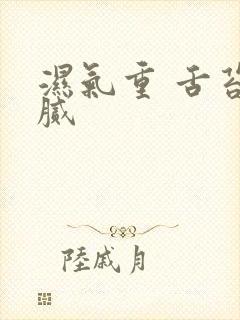 濕氣重 舌苔
膩
陸戚月